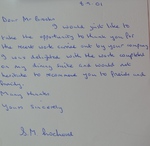 Dear Mr
I would just like to
take the opportunity to thank you for
the recent work carried out by your company
I was delighted with the work completed
on my living suite and would not
hesitate to recommend you to friends and
family.
Many thanks
Yours Sincerely
S.M.